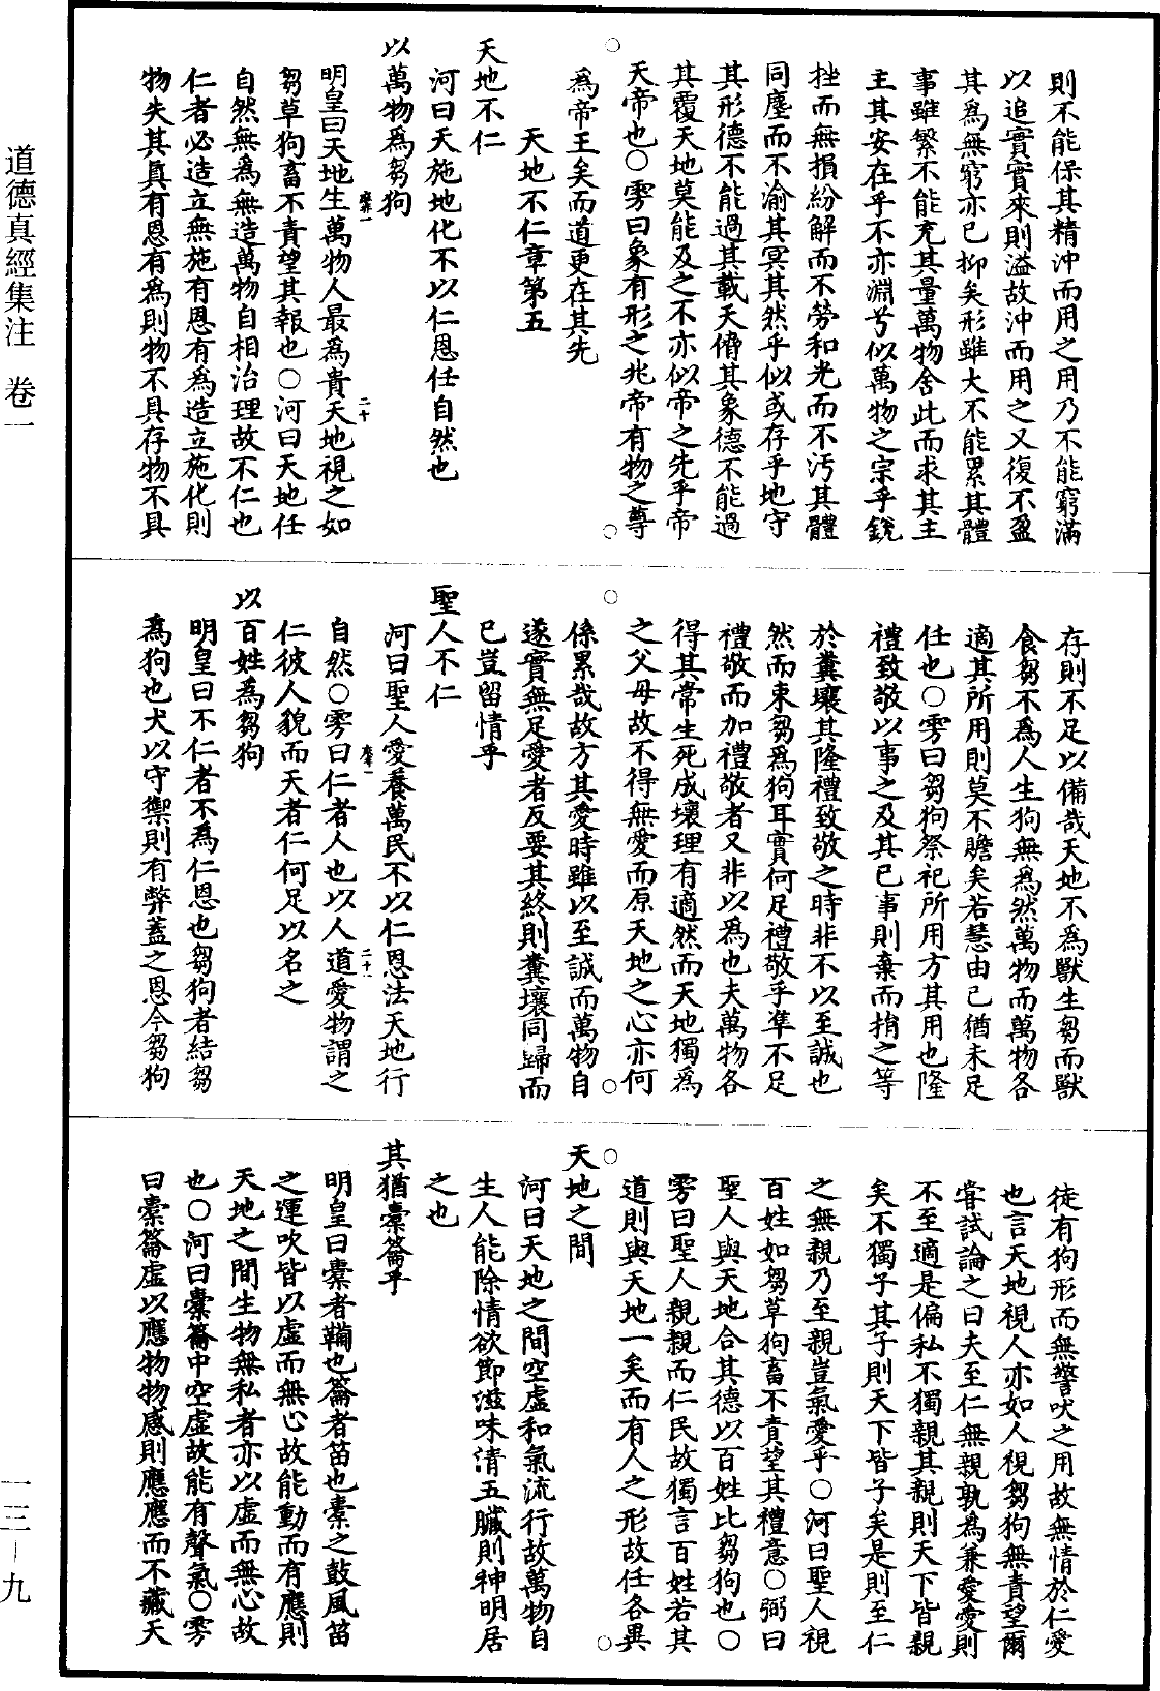 則不能保其精沖而用之用乃不能窮滿
以追實實來則溢故沖而用之又復不盈
其爲無窮亦已抑矣形雖大不能累其體
事雖繁不能充其量萬物舍此而求其主
主其安在乎不亦淵兮似萬物之宗乎銳
挫而無損紛解而不勞和光而不汚其體
同塵而不渝其冥其然乎似或存乎地守
其形德不能過其載天㑥其象德不能過
其覆天地莫能及之不亦似帝之先乎帝
天帝也○雱曰象有形之兆帝有物之尊
爲帝王矣而道更在其先
天地不仁章第五
天地不仁
河曰天施地化不以仁恩任自然也
以萬物爲芻狗
明皇曰天地生萬物人最爲貴天地視之如
芻草狗畜不責望其報也○河曰天地任
自然無爲無造萬物自相治理故不仁也
仁者必造立無施有恩有爲造立施化則
物失其真有恩有爲則物不具存物不具
存則不足以備哉天地不爲獸生芻而獸
食芻不爲人生狗無爲然萬物而萬物各
適其所用則莫不贍矣若慧由己猶未足
任也○雱曰芻狗祭祀所用方其用也隆
禮致敬以事之及其已事則棄而捐之等
於糞壤其隆禮致敬之時非不以至誠也
然而束芻爲狗耳實何足禮敬乎準不足
禮敬而加禮敬者又非以爲也夫萬物各
得其常生死成壞理有適然而天地獨爲
之父母故不得無愛而原天地之心亦何
係累哉故方其愛時雖以至誠而萬物自
遂實無足愛者反要其終則糞壤同歸而
已豈留情乎
聖人不仁
河曰聖人愛養萬民不以仁恩法天地行
自然○雱曰仁者人也以人道愛物謂之
仁彼人貌而天者仁何足以名之
以百姓爲芻狗
明皇曰不仁者不爲仁恩也芻狗者結芻
爲狗也犬以守禦則有弊蓋之恩今芻狗
徒有狗形而無警吠之用故無情於仁愛
也言天地視人亦如人視芻狗無責望爾
嘗試論之曰夫至仁無親孰爲兼愛愛則
不至適是偏私不獨親其親則天下皆親
矣不獨子其子則天下皆子矣是則至仁
之無親乃至親豈氣愛乎○河曰聖人視
百姓如芻草狗畜不責望其禮意○弼曰
聖人與天地合其德以百姓比芻狗也○
雱曰聖人親親而仁民故獨言百姓若其
道則與天地一矣而有人之形故任各異
天地之間
河曰天地之間空虛和氣流行故萬物自
生人能除情欲節滋味清五臟則神明居
之也
其猶橐籥乎
明皇曰橐者鞴也籥者笛也橐之鼓風笛
之運吹皆以虛而無心故能動而有應則
天地之間生物無私者亦以虛而無心故
也○河曰橐籥中空虛故能有聲氣○雱
曰橐籥虛以應物物感則應應而不藏天
道德真經集注　卷一
一三—九